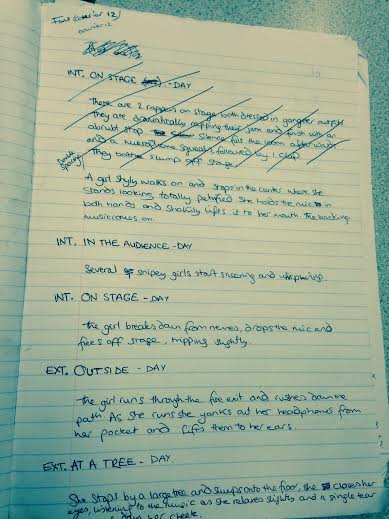 Font Courier 12
courier 12
INT. ON STAGE - DAY
There are 2 rappers on stage both dressed in gangster outfits
They are dramatically rapping their jam and finish with an
abrupt stop Silence fills the room afterwards
and a microphone squeaks, followed by 1 clap
They bother slump off stage.
A girl shyly walks on and stops in the center where she
stands looking totally petrified she holds the mic in
both hands and shakily lifts it to her mouth the backing
music comes on
INT. IN THE AUDIENCE - DAY
Several snipey girls start sneering and whispering.
INT. ON STAGE - DAY
the girl breaks down from nerves, drops the mic and
flees off stage, tripping slightly.
EXT. OUTSIDE - DAY
the girl runs through the fire exit and rushes down the
path As she runs she yanks out her headphones from
her pocket and lifts them to her ears.
EXT. AT A TREE - DAY
She stops by a large tree and slumps onto the floor, she closes her
eyes, listening to the music as she relaxes slightly and a single tear
her cheek.